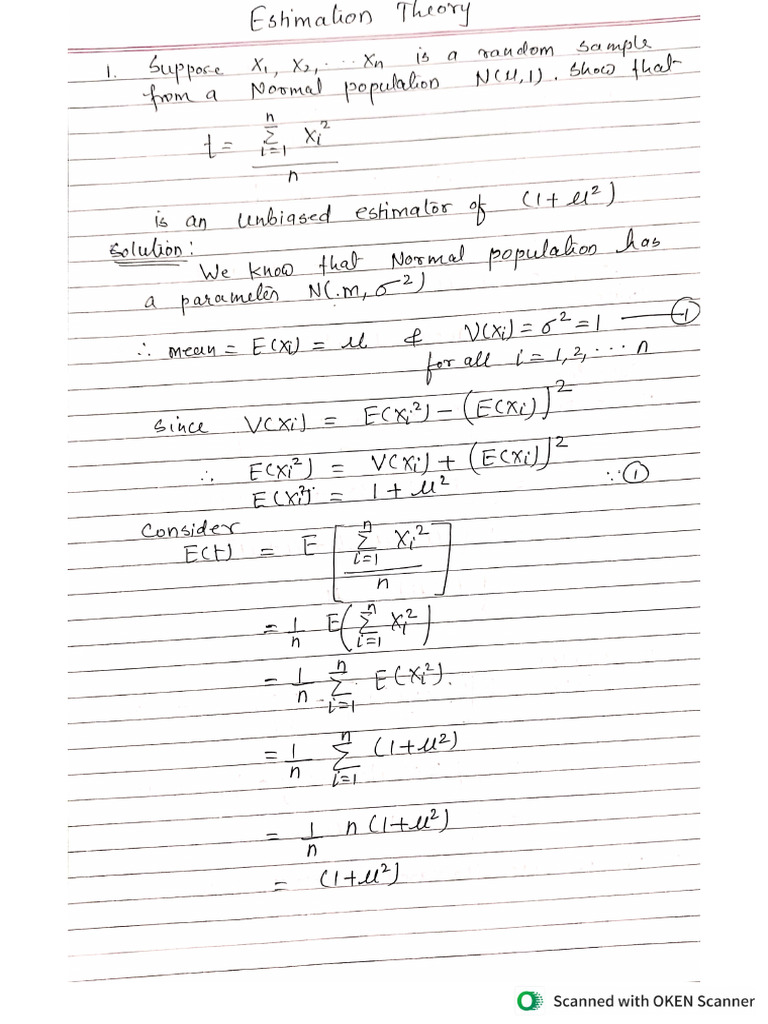 Estimation Theory
1. Suppose X₁, X₂, ... Xn is a random sample
from a Normal population N(μ,1). Show that
t = Σ_{i=1}^{n} Xi² / n
is an unbiased estimator of (1+μ²)
Solution:
We know that Normal population has
a parameters N(.m, σ²)
∴ mean = E(xi) = μ & V(xi) = σ² = 1 —— ①
for all i = 1,2, ... n
Since V(xi) = E(xi²) - (E(xi))²
∴ E(xi²) = V(xi) + (E(xi))²
E(xi²) = 1 + μ² ∵ ①
Consider
E(t) = E [ Σ_{i=1}^{n} Xi² / n ]
= 1/n E( Σ_{i=1}^{n} Xi² )
= 1/n Σ_{i=1}^{n} E(xi²).
= 1/n Σ_{i=1}^{n} (1+μ²)
= 1/n n(1+μ²)
= (1+μ²)
Scanned with OKEN Scanner